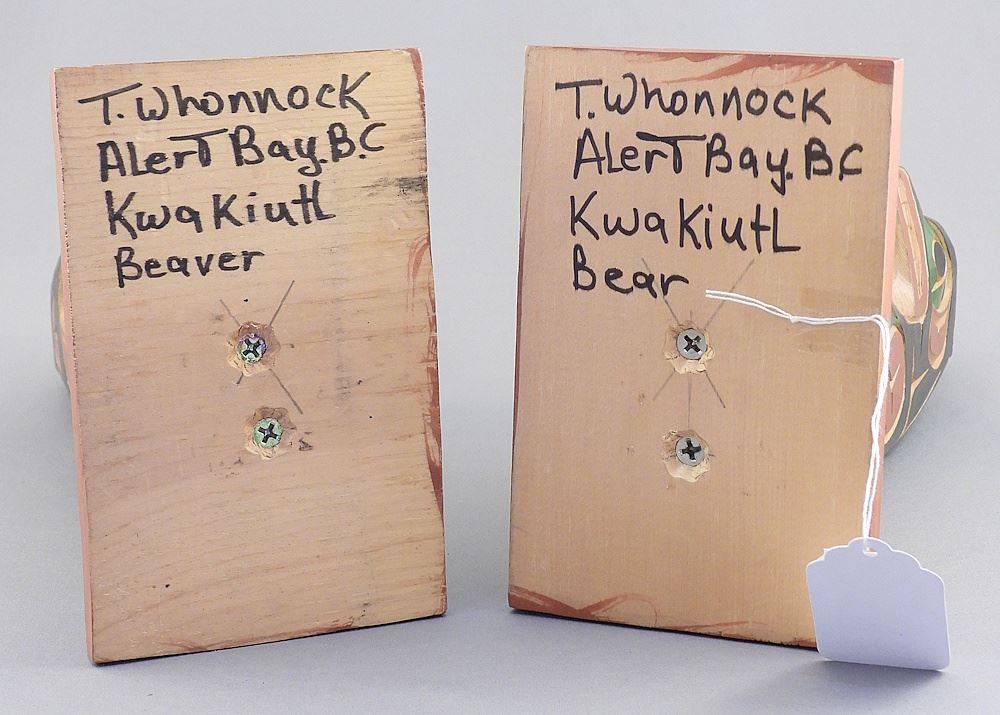 T. Whonnock
Alert Bay. B.C
Kwakiutl
Beaver
T. Whonnock
Alert Bay. BC
Kwakiutl
Bear